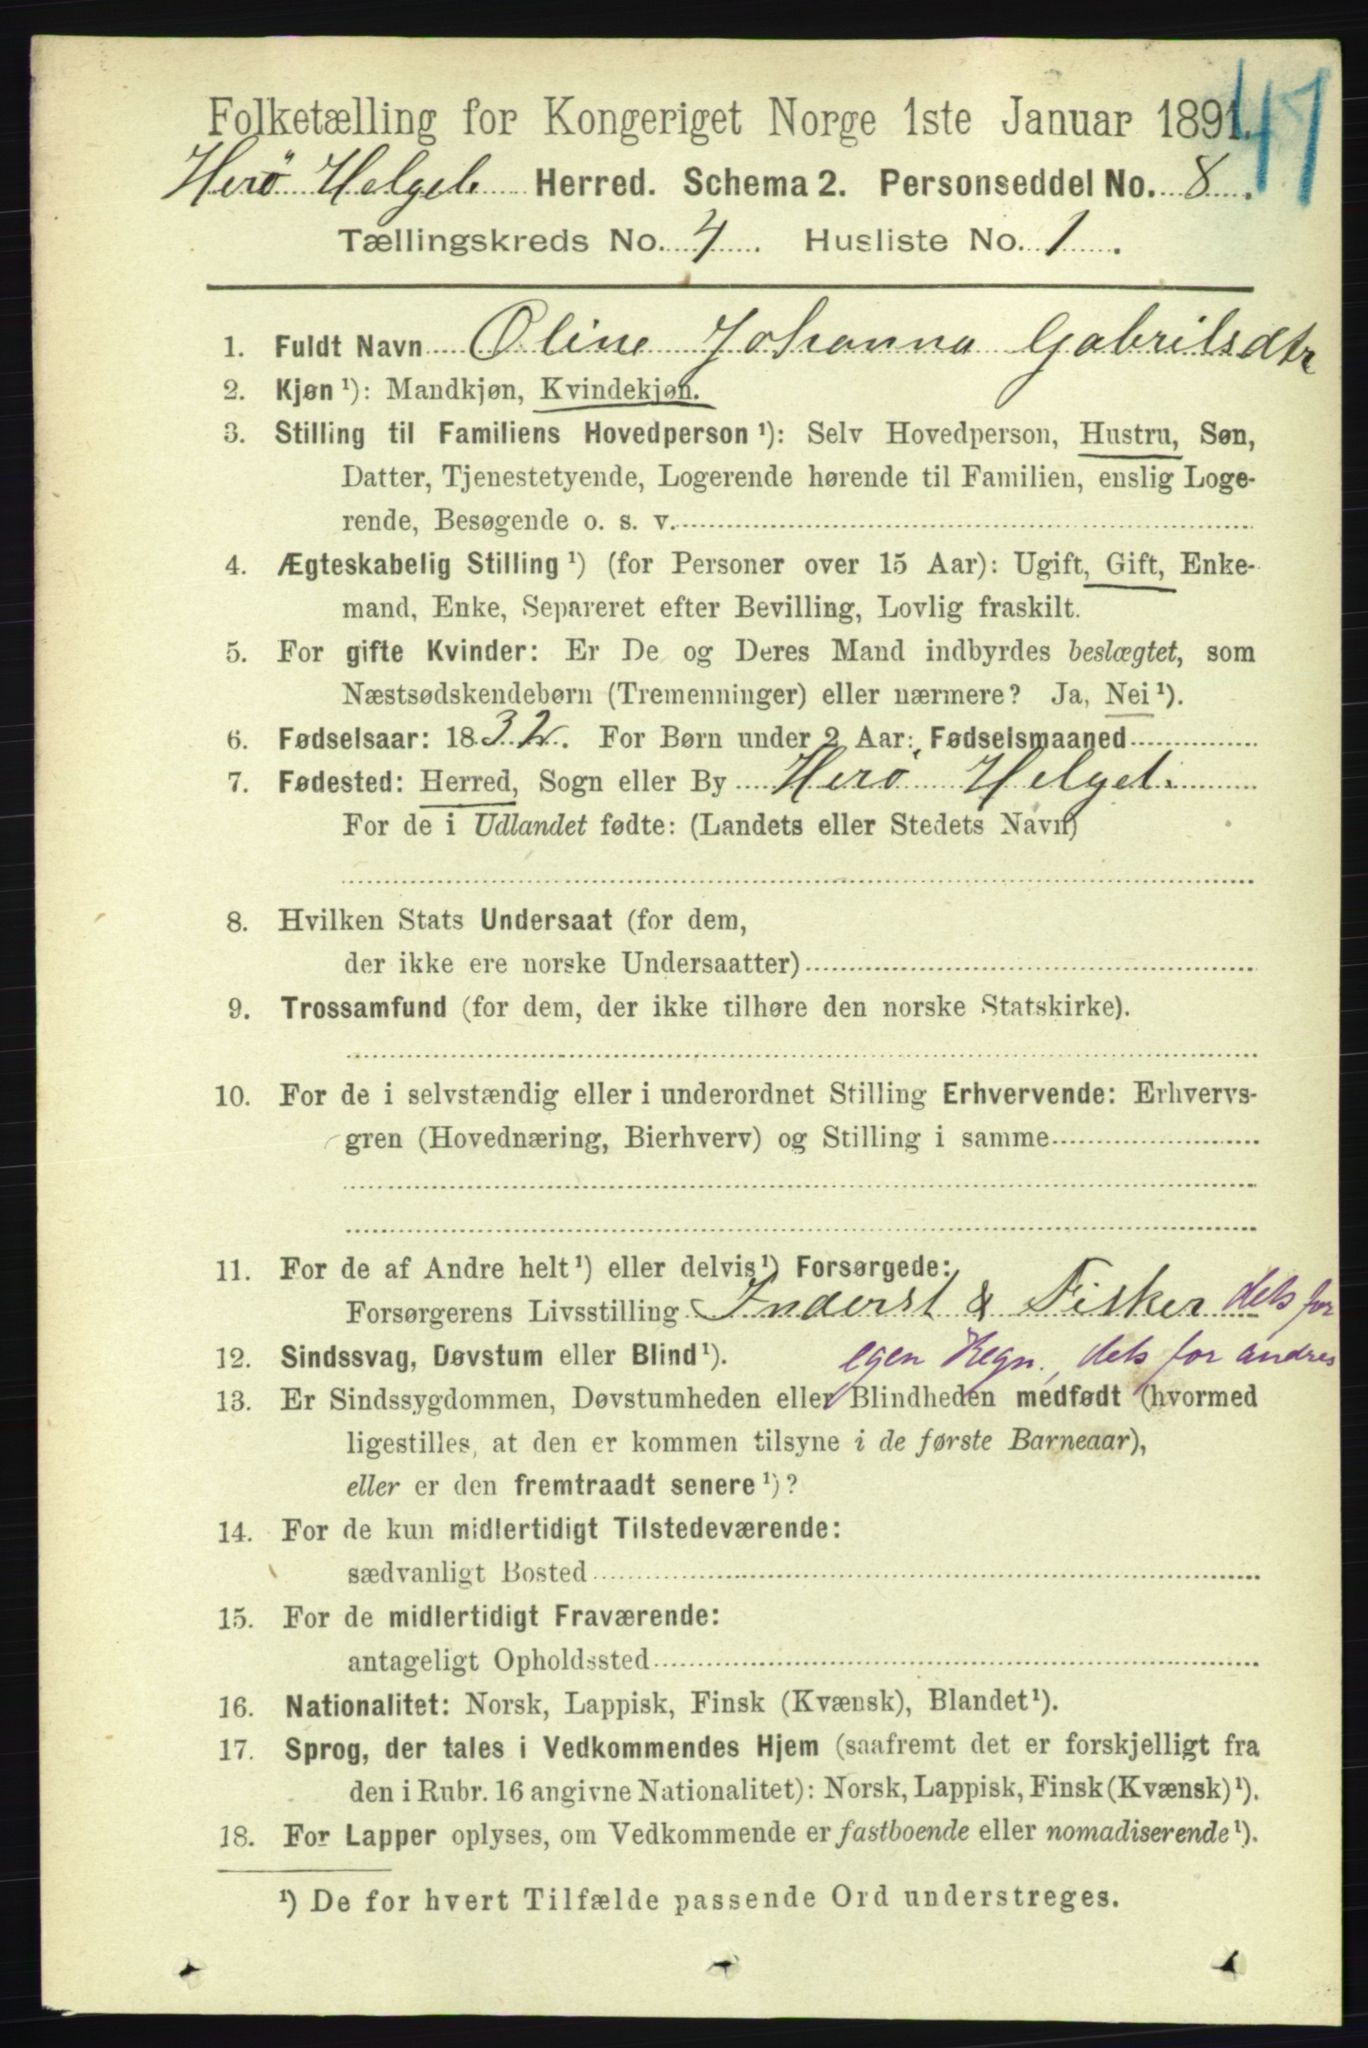 47
Folketælling for Kongeriget Norge 1ste Januar 1891.
Herö Helgel. Herred. Schema 2. Personseddel No. 8.
Tællingskreds No. 4. Husliste No. 1.
1. Fuldt Navn Oline Johanna Gabrilsdtr
2. Kjøn ¹): Mandkjøn, Kvindekjøn.
3. Stilling til Familiens Hovedperson ¹): Selv Hovedperson, Hustru, Søn,
Datter, Tjenestetyende, Logerende hørende til Familien, enslig Loge-
rende, Besøgende o. s. v.
4. Ægteskabelig Stilling ¹) (for Personer over 15 Aar): Ugift, Gift, Enke-
mand, Enke, Separeret efter Bevilling, Lovlig fraskilt.
5. For gifte Kvinder: Er De og Deres Mand indbyrdes beslægtet, som
Næstsødskendebørn (Tremenninger) eller nærmere? Ja, Nei ¹).
6. Fødselsaar: 1832. For Børn under 2 Aar: Fødselsmaaned
7. Fødested: Herred, Sogn eller By Herö Helgel.
For de i Udlandet fødte: (Landets eller Stedets Navn)
8. Hvilken Stats Undersaat (for dem,
der ikke ere norske Undersaatter)
9. Trossamfund (for dem, der ikke tilhøre den norske Statskirke).
10. For de i selvstændig eller i underordnet Stilling Erhvervende: Erhvervs-
gren (Hovednæring, Bierhverv) og Stilling i samme
11. For de af Andre helt ¹) eller delvis ¹) Forsørgede:
Forsørgerens Livsstilling Inderst & Fisker dels for
12. Sindssvag, Døvstum eller Blind ¹). egen Regn., dels for andres
13. Er Sindssygdommen, Døvstumheden eller Blindheden medfødt (hvormed
ligestilles, at den er kommen tilsyne i de første Barneaar),
eller er den fremtraadt senere ¹)?
14. For de kun midlertidigt Tilstedeværende:
sædvanligt Bosted
15. For de midlertidigt Fraværende:
antageligt Opholdssted
16. Nationalitet: Norsk, Lappisk, Finsk (Kvænsk), Blandet ¹).
17. Sprog, der tales i Vedkommendes Hjem (saafremt det er forskjelligt fra
den i Rubr. 16 angivne Nationalitet): Norsk, Lappisk, Finsk (Kvænsk) ¹).
18. For Lapper oplyses, om Vedkommende er fastboende eller nomadiserende ¹).
¹) De for hvert Tilfælde passende Ord understreges.